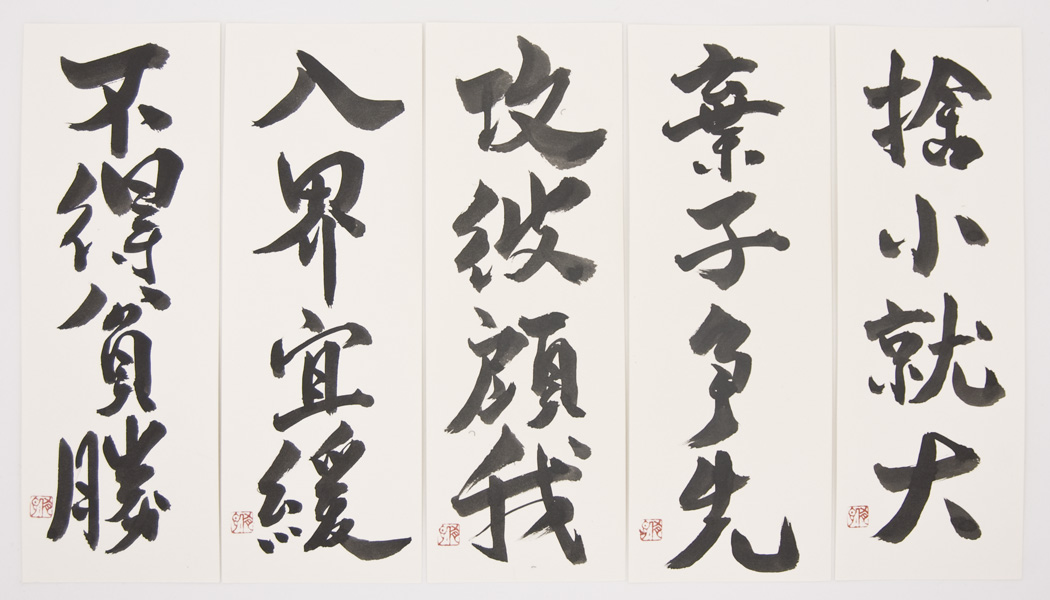 不得貪勝
入界宜緩
攻彼顧我
棄子争先
捨小就大